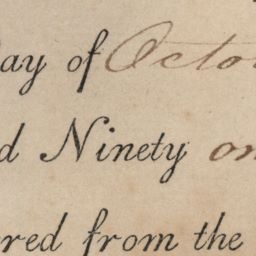 ay of Octo
d Ninety on
red from the